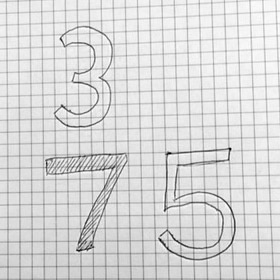 3
75